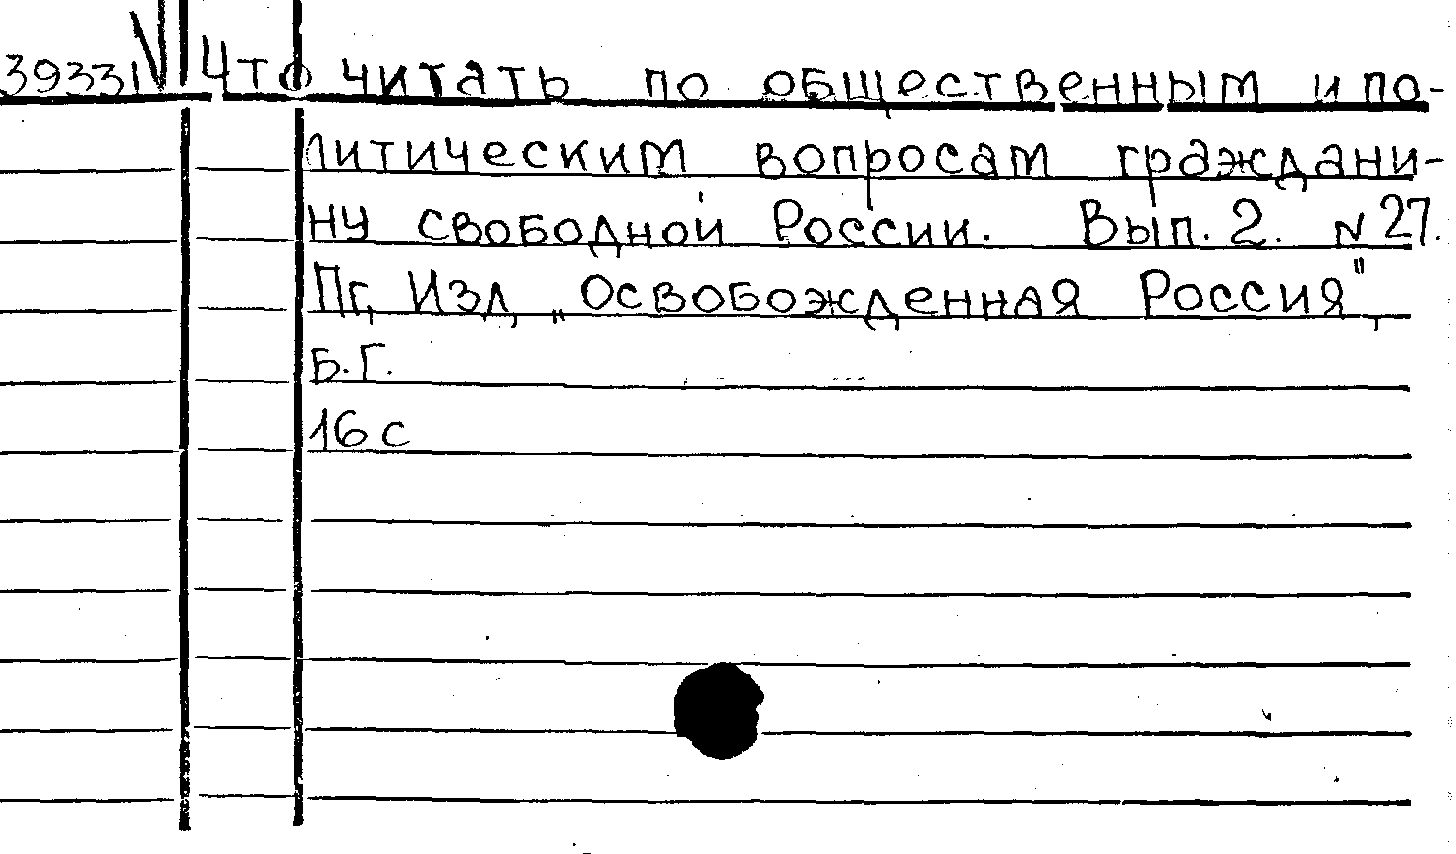 39331 Что читать по общественным и по-
литическим вопросам граждани-
ну свободной России. Вып. 2. N 27.
Пг, Изд, „Освобожденная Россия",
Б.Г.
16 с